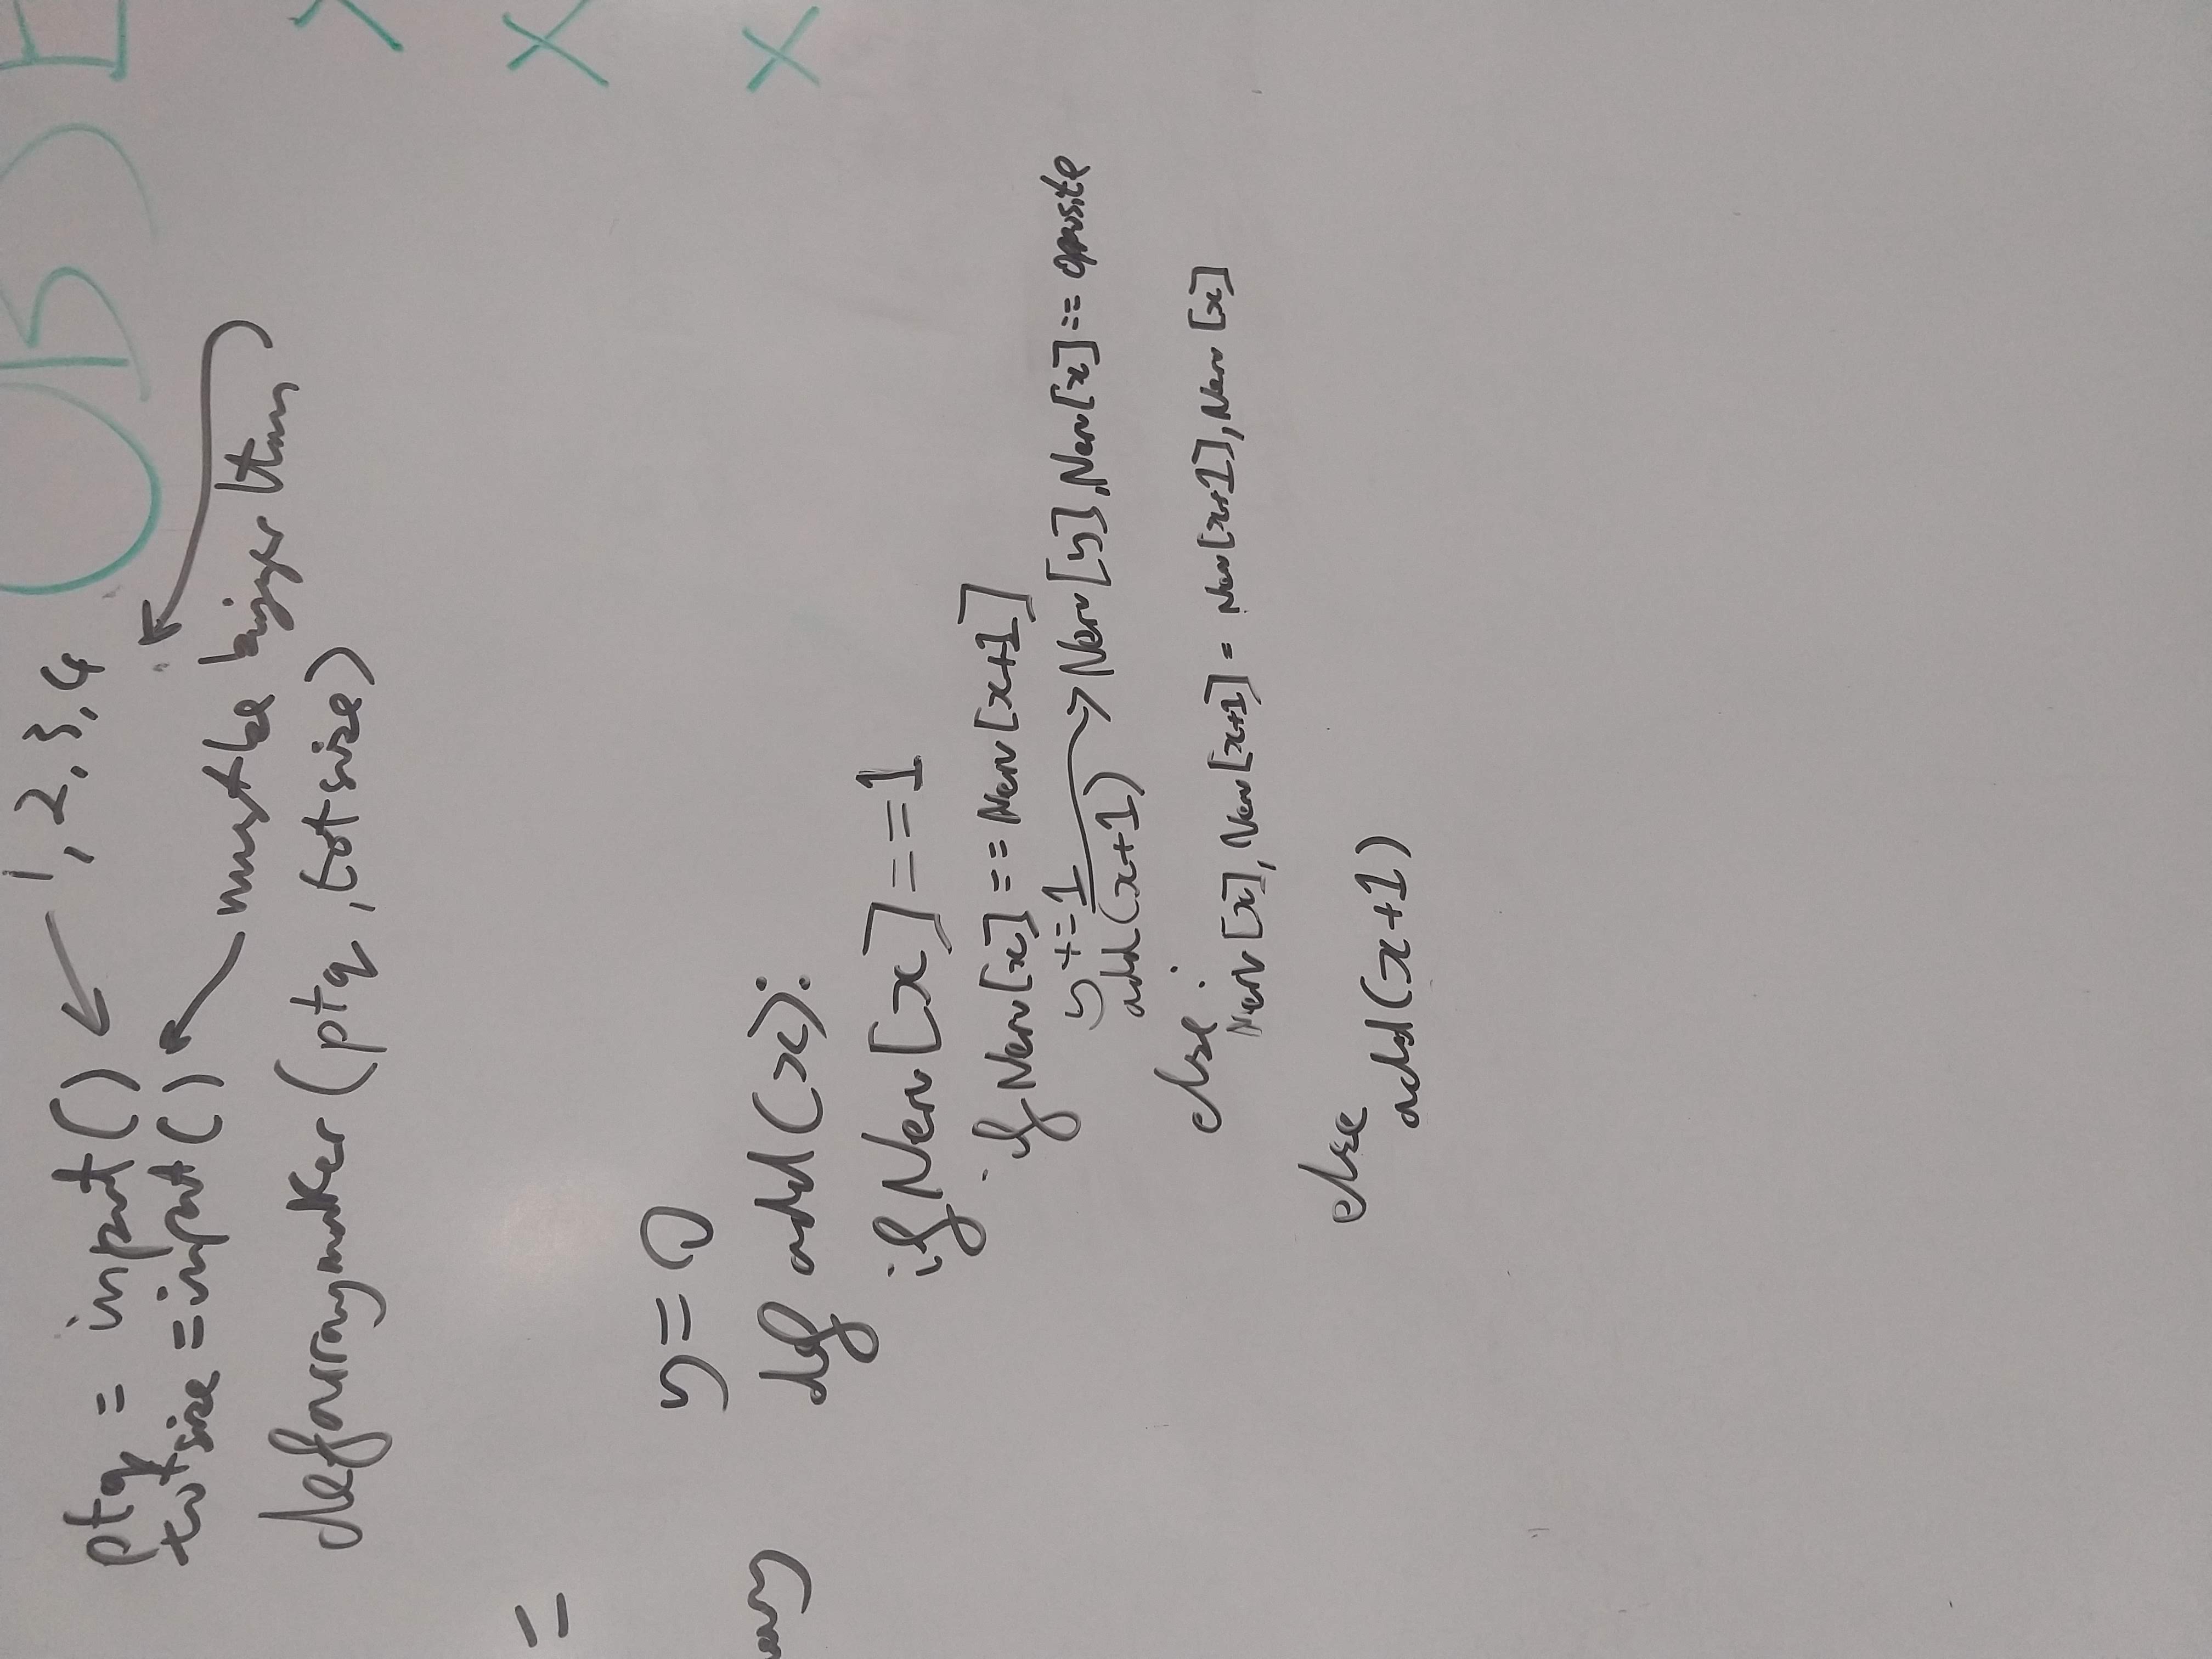 1, 2, 3, 4
OBSE
ptq = input()
totsize = input()
must be bigger than
def arraymaker(ptq, totsize)
=
y = 0
def add(x):
if New[x] == 1
if New[x] == New[x+1]
y += 1
add(x+1)
New[y], New[x] == opposite
else:
New[x], New[x+1] = New[x+1], New[x]
else
add(x+1)
X
X
X